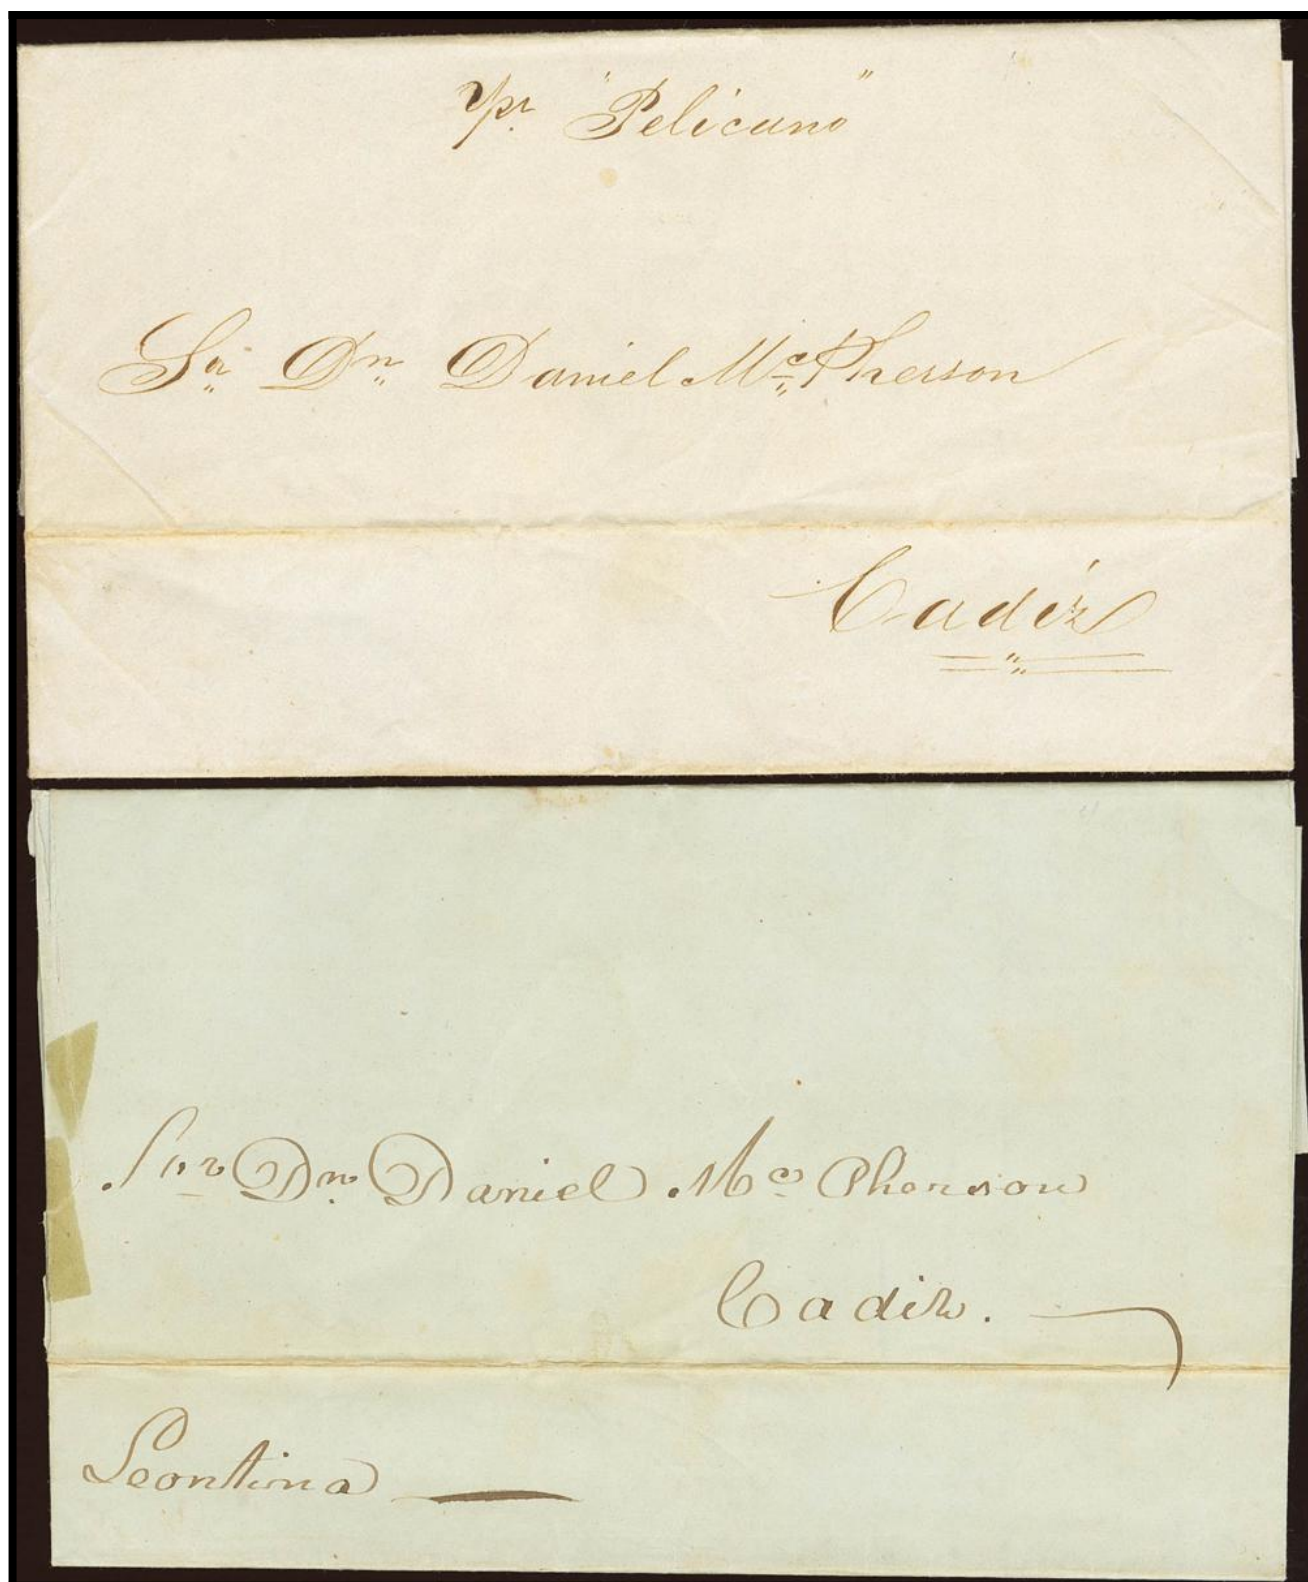 pr. "Pelicano"
Sn. Dn. Daniel Mc.Pherson
Cadiz
Snr Dn. Daniel Mc Pherson
Cadiz.
Leontina